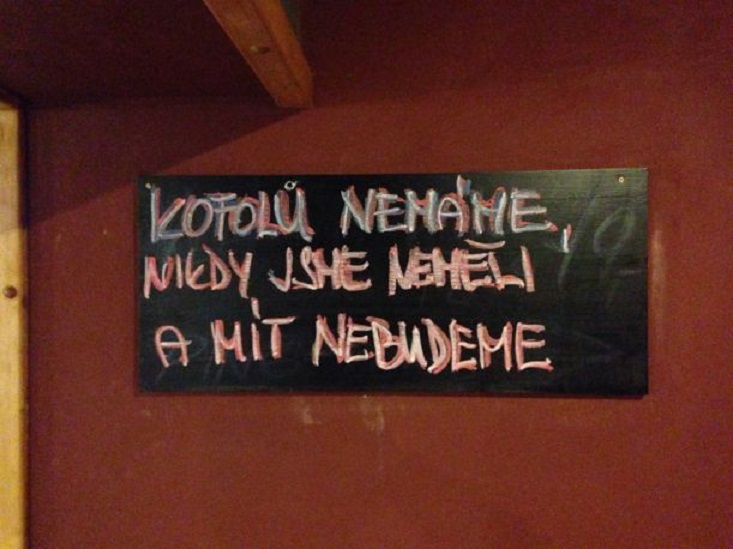 KOFOLŮ NEMÁME,
NIKDY JSME NEMĚLI
A MÍT NEBUDEME